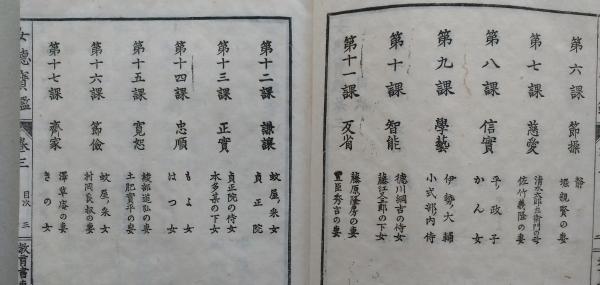 第六課 節操
静
堀親賢の妻
第七課 慈愛
清水太郎左衞門の母
佐竹義隆の妻
第八課 信實
平ノ政子
かん女
第九課 學藝
伊勢ノ大輔
小式部内侍
第十課 智能
德川綱吉の侍女
藤江又三郎の下女
第十一課 反省
藤原隆房の妻
豐臣秀吉の妻
第十二課 謙讓
蚊屋ノ采女
貞正院
第十三課 正實
貞正院の侍女
本多某の下女
第十四課 忠順
もよ女
はつ女
第十五課 寬恕
綾部道弘の妻
土肥實平の妻
第十六課 節儉
蚊屋ノ采女
村岡良叔の妻
第十七課 齊家
澤草庵の妻
きの女
女德寶鑑
卷三
目次
三
教育書